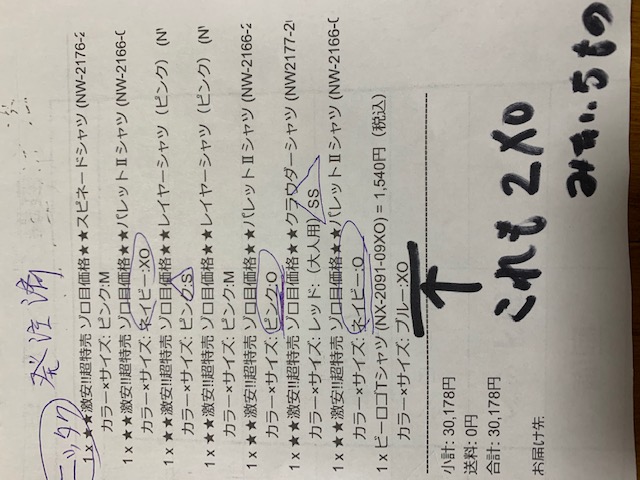 ニッタク 発注済
1 x ★★激安!!超特売 ゾロ目価格★★スピネードシャツ (NW-2176-2
カラー×サイズ: ピンク:M
1 x ★★激安!!超特売 ゾロ目価格★★パレットⅡシャツ (NW-2166-0
カラー×サイズ: ネイビー:XO
1 x ★★激安!!超特売 ゾロ目価格★★レイヤーシャツ (ピンク) (N
カラー×サイズ: ピンク:S
1 x ★★激安!!超特売 ゾロ目価格★★レイヤーシャツ (ピンク) (N
カラー×サイズ: ピンク:M
1 x ★★激安!!超特売 ゾロ目価格★★パレットⅡシャツ (NW-2166-2
カラー×サイズ: ピンク:O
1 x ★★激安!!超特売 ゾロ目価格★★クラウダーシャツ (NW2177-2
カラー×サイズ: レッド: (大人用) SS
1 x ★★激安!!超特売 ゾロ目価格★★パレットⅡシャツ (NW-2166-0
カラー×サイズ: ネイビー:O
1 x ビーロゴTシャツ (NX-2091-09XO) = 1,540円 (税込)
カラー×サイズ: ブルー:XO
小計: 30,178円
送料: 0円
合計: 30,178円
お届け先
これも 2XO
みたいなもの